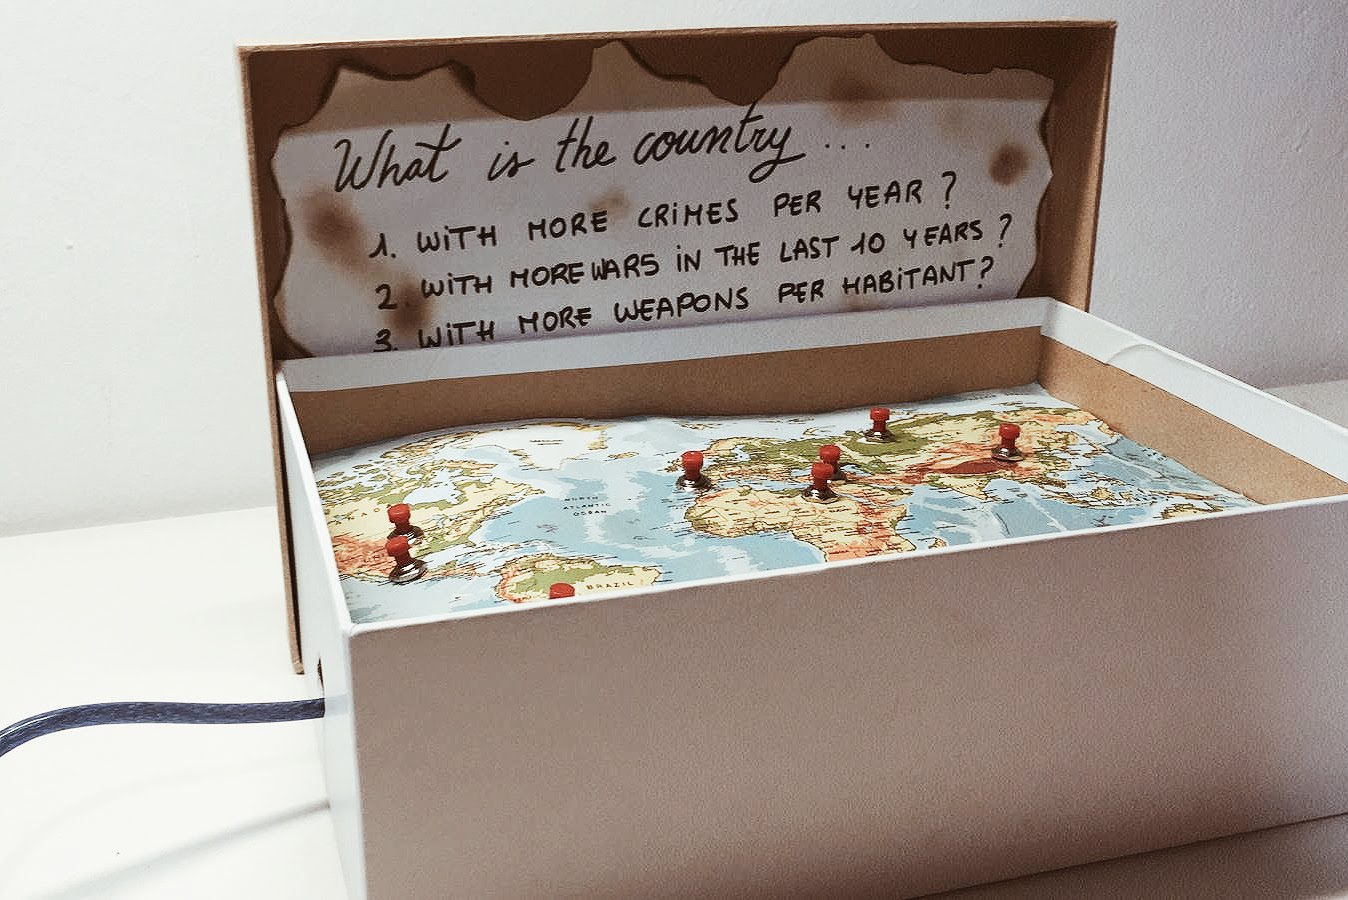 What is the country...
1. WITH MORE CRIMES PER YEAR ?
2. WITH MORE WARS IN THE LAST 10 YEARS ?
3. WITH MORE WEAPONS PER HABITANT?
NORTH
ATLANTIC
OCEAN
BRAZIL